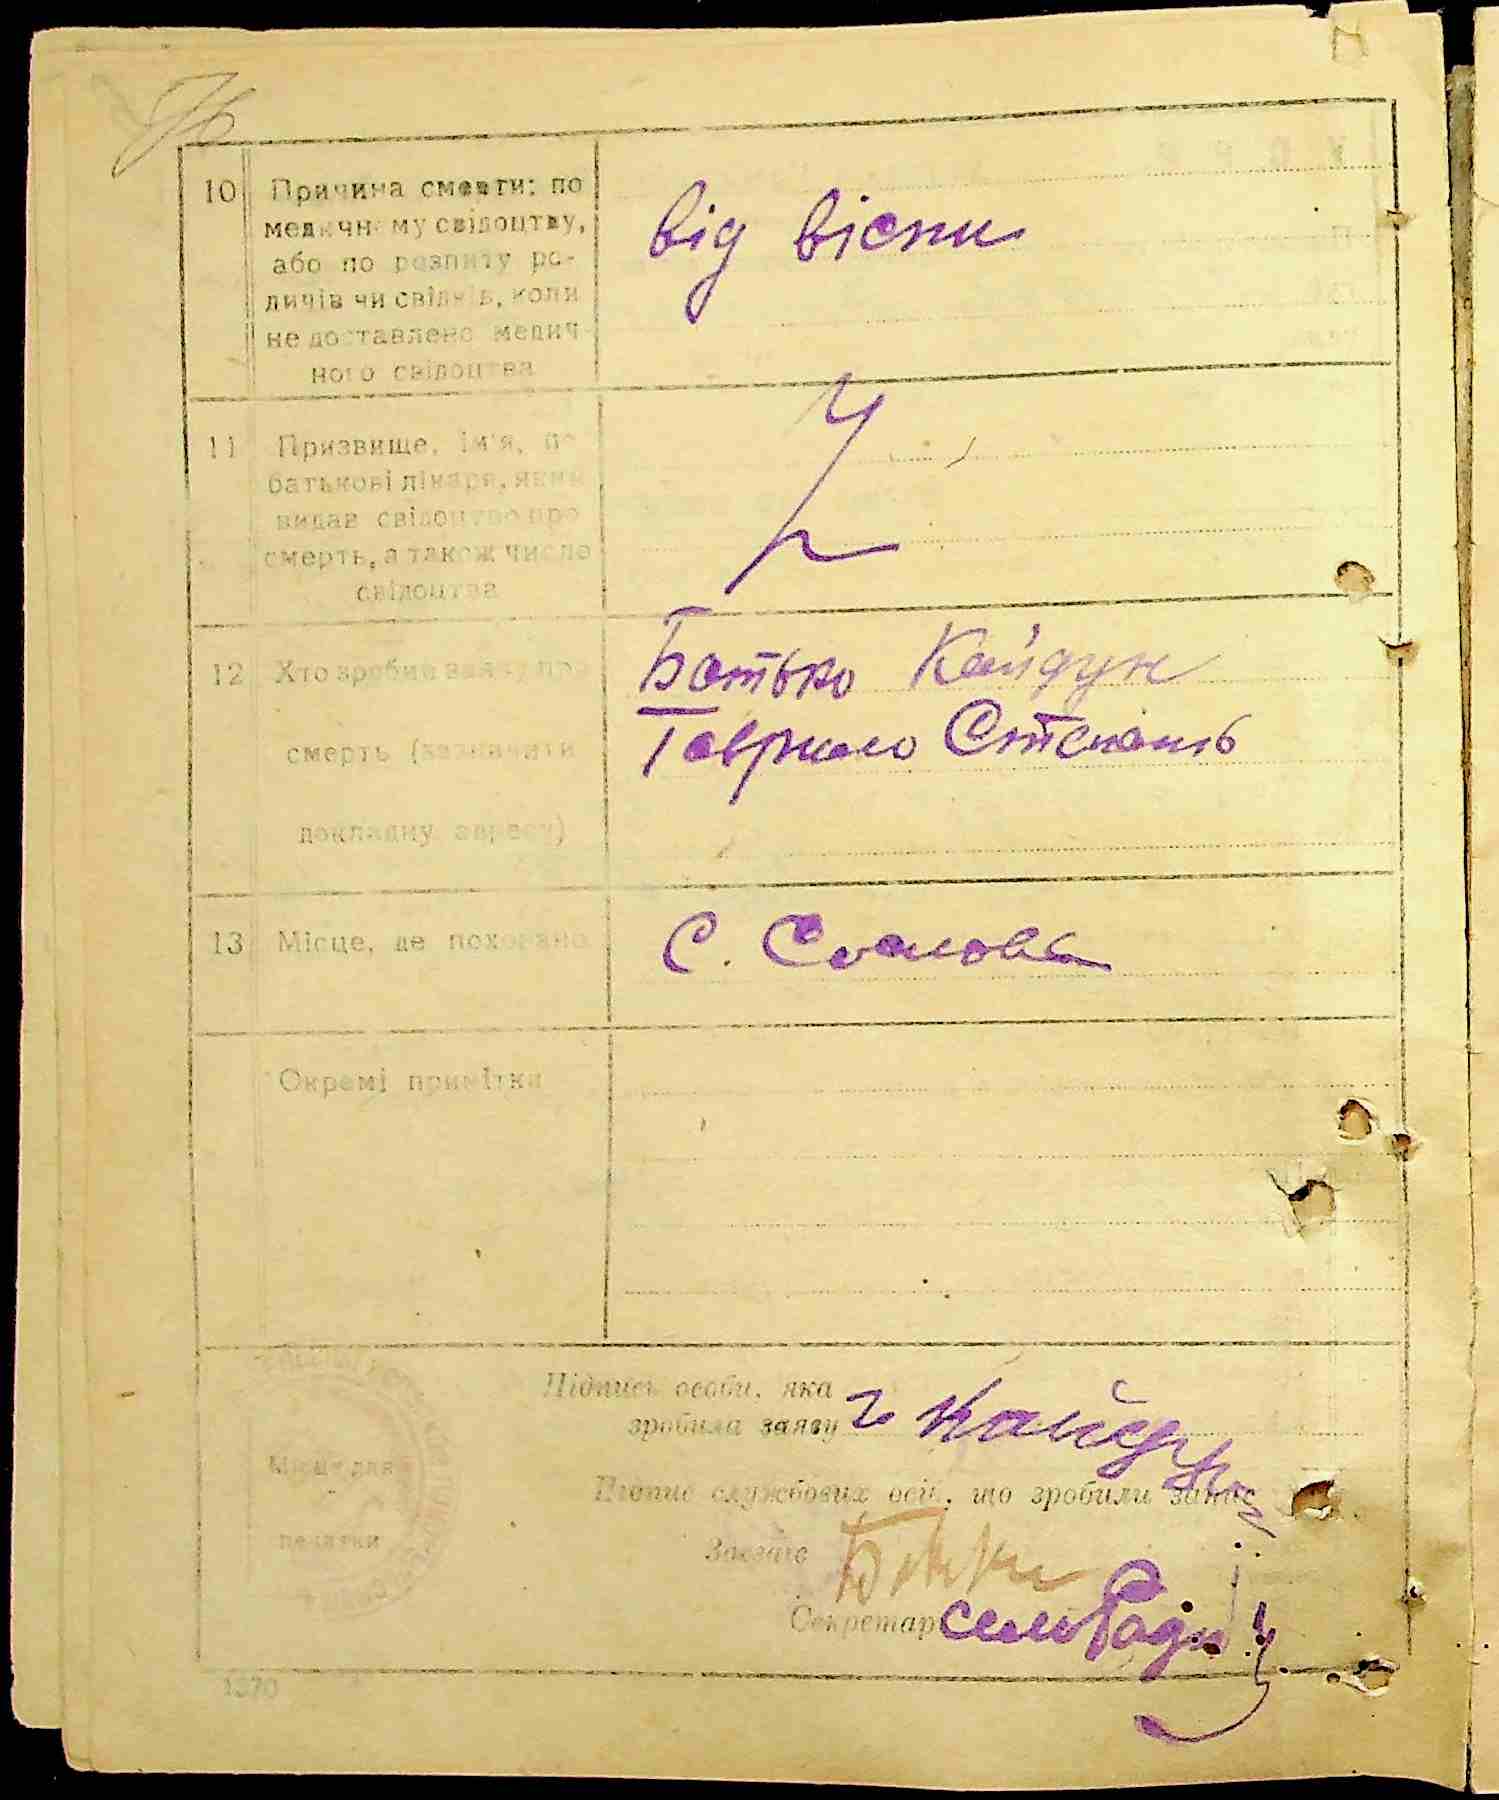 76
10 Причина смерти: по
медичному свідоцтву,
або по розпиту ро-
дичів чи свідків, коли
не доставлено медич-
ного свідоцтва
від віспи
11 Призвище, ім'я, по
батькові лікаря, який
видав свідоцтво про
смерть, а також число
свідоцтва
12 Хто зробив заяву про
смерть (зазначити
докладну адресу)
Батько Кайдун
Гаврило Степань
13 Місце, де поховано
С.
Окремі примітки
Підпис особи, яка
зробила заяву Г Кайдун
Підпис службових осіб, що зробили запис
Місце для
печатки
Завзагс
Секретар сельРади
1370